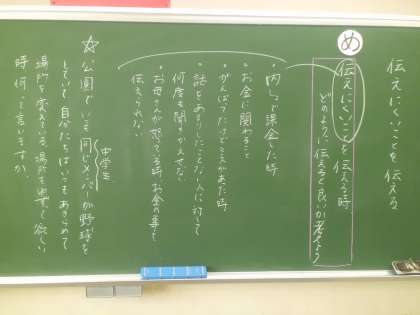 伝えにくいことを伝える
め
伝えにくいことを伝える時
どのように伝えると良いか考えよう
・内しょで課金した時
・お金に関わること
・がんばってたけどこえがあた時
・話をあまりしたことない人に対して
何度も聞きかえせない
・お母さんが怒ってる時お金の事を
伝えられない
☆公園でいつも同じメンバーが野球を
中学生
していて、自分たちはいつもあきらめて
場所を変えている。場所を変えて欲しい
時何って言いますか。